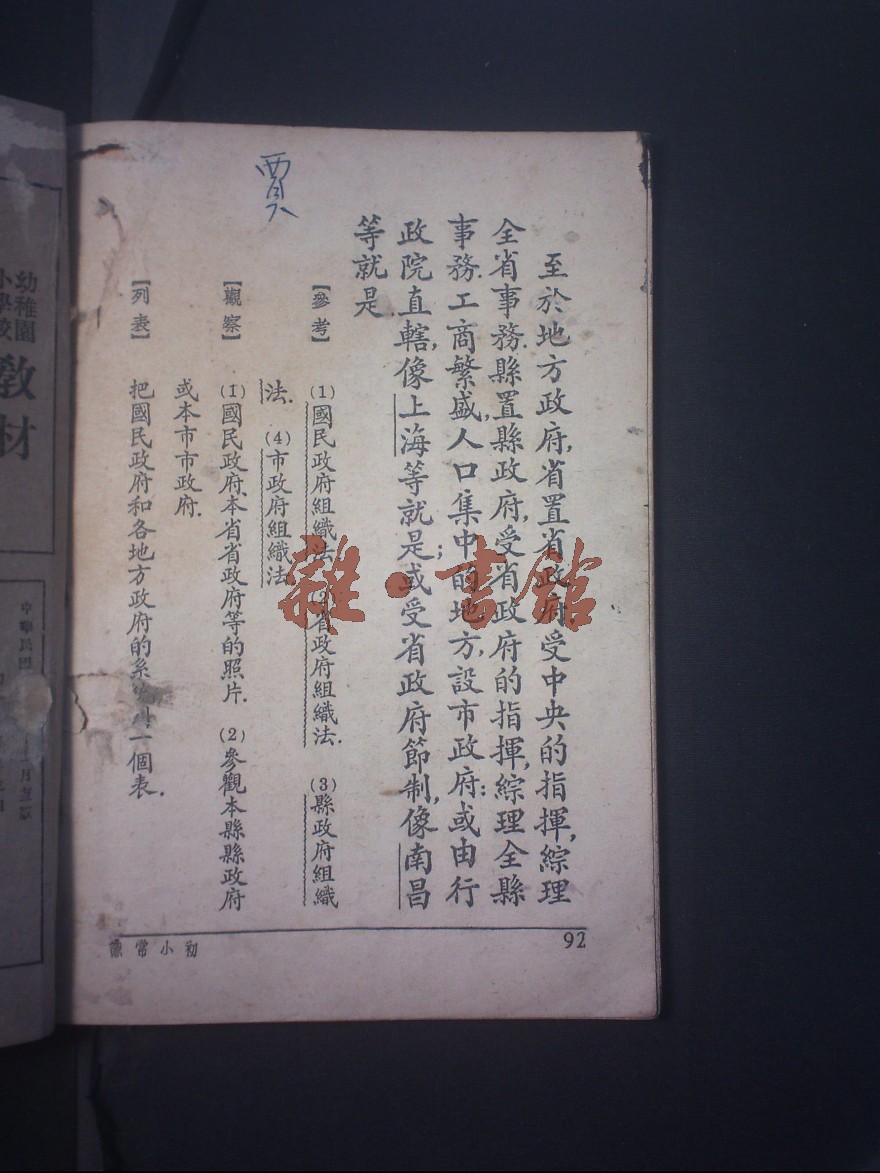 賈
至於地方政府,省置省政府,受中央的指揮,綜理
全省事務.縣置縣政府,受省政府的指揮,綜理全縣
事務.工商繁盛,人口集中的地方,設市政府;或由行
政院直轄,像上海等就是;或受省政府節制,像南昌
等就是.
【參考】 (1)國民政府組織法. (2)省政府組織法. (3)縣政府組織
法. (4)市政府組織法.
【觀察】 (1)國民政府,本省省政府等的照片. (2)參觀本縣縣政府
或本市市政府.
【列表】 把國民政府和各地方政府的系 一個表.
92
初小常識
幼稚園
小學校
教材
雜·書館